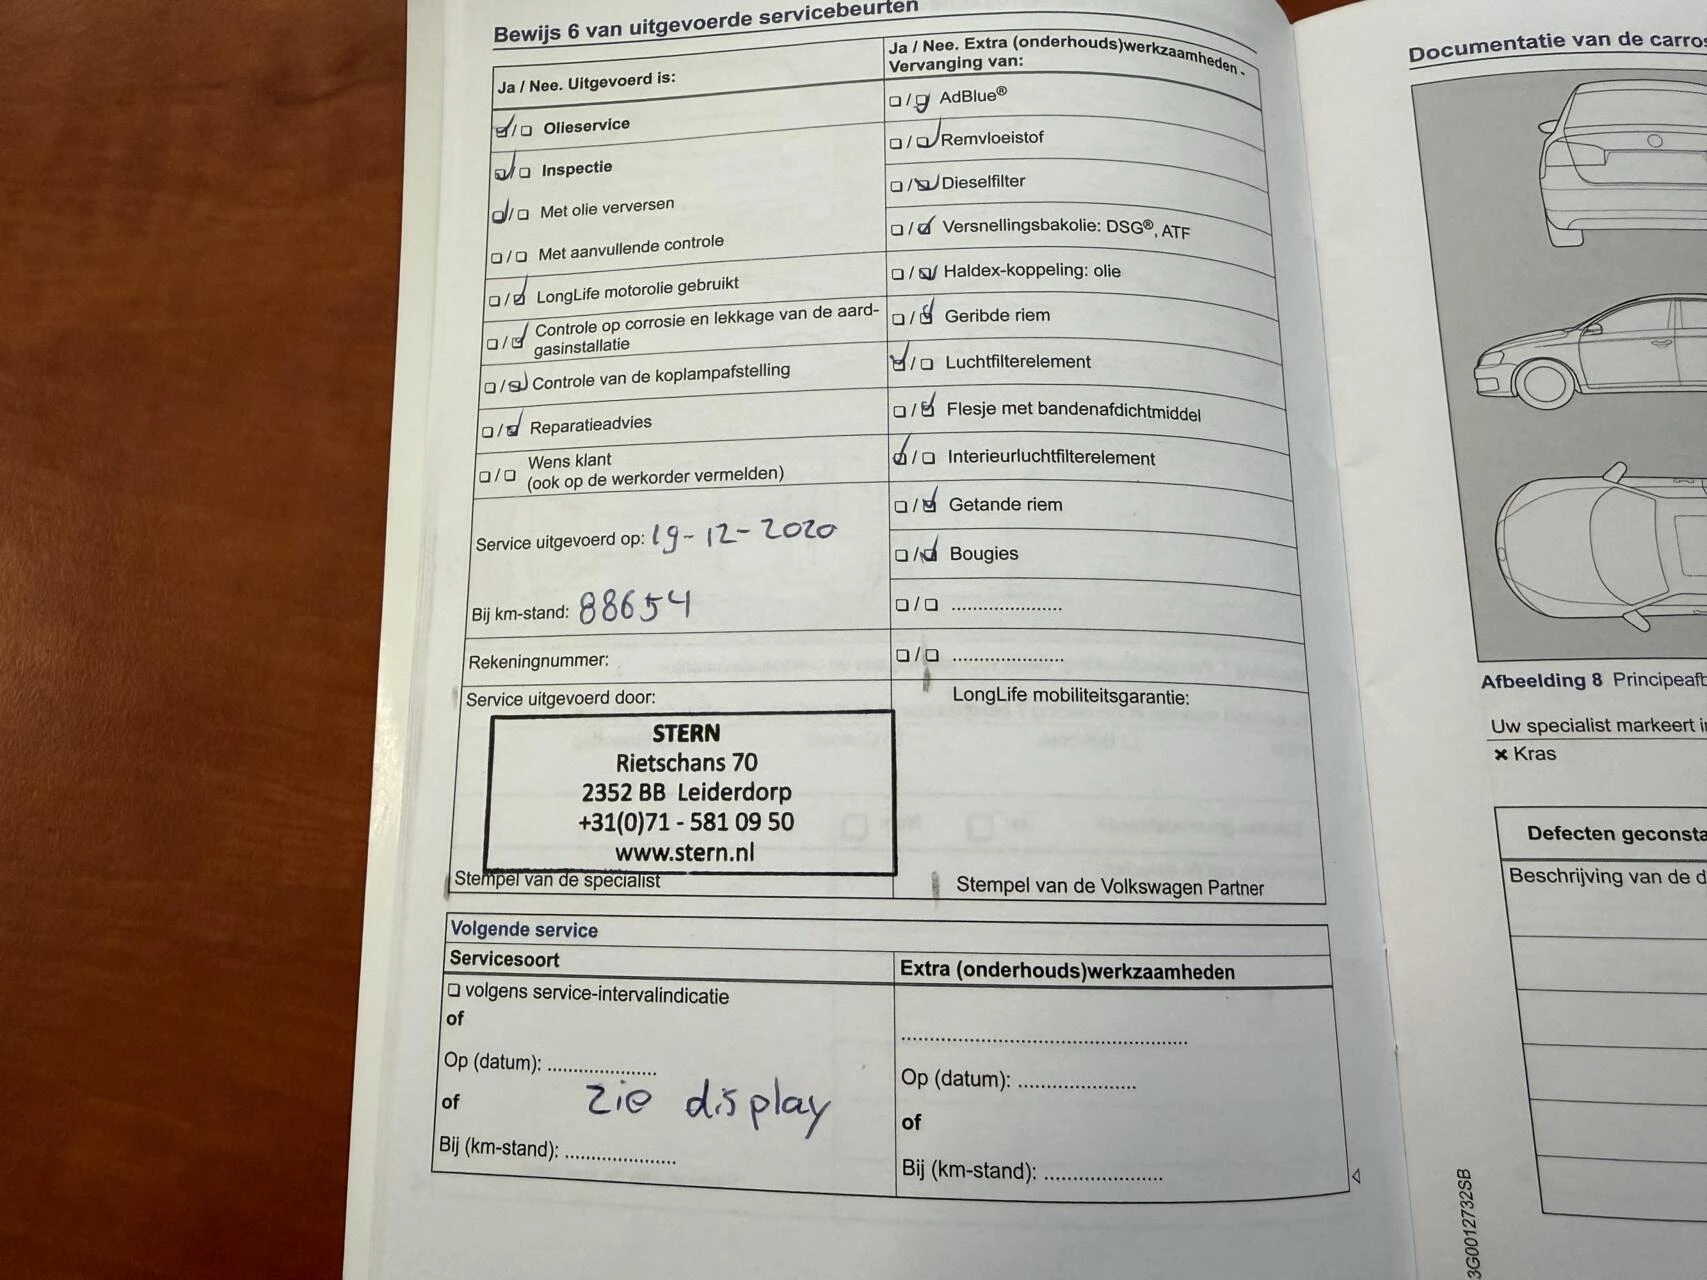 Bewijs 6 van uitgevoerde servicebeurten
Ja / Nee. Uitgevoerd is:
Olieservice
Inspectie
Met olie verversen
Met aanvullende controle
LongLife motorolie gebruikt
Controle op corrosie en lekkage van de aard-
gasinstallatie
Controle van de koplampafstelling
Reparatieadvies
Wens klant
(ook op de werkorder vermelden)
Service uitgevoerd op: 19-12-2020
Bij km-stand: 88654
Rekeningnummer:
Service uitgevoerd door:
STERN
Rietschans 70
2352 BB Leiderdorp
+31(0)71 - 581 09 50
www.stern.nl
Stempel van de specialist
Ja / Nee. Extra (onderhouds)werkzaamheden -
Vervanging van:
AdBlue®
Remvloeistof
Dieselfilter
Versnellingsbakolie: DSG®, ATF
Haldex-koppeling: olie
Geribde riem
Luchtfilterelement
Flesje met bandenafdichtmiddel
Interieurluchtfilterelement
Getande riem
Bougies
LongLife mobiliteitsgarantie:
Stempel van de Volkswagen Partner
Volgende service
Servicesoort
volgens service-intervalindicatie
of
Op (datum): ....................
of
zie display
Bij (km-stand): ....................
Extra (onderhouds)werkzaamheden
Op (datum): ....................
of
Bij (km-stand): ....................
Documentatie van de carros
Afbeelding 8 Principeafb
Uw specialist markeert i
× Kras
Defecten geconsta
Beschrijving van de d
3G0012732SB